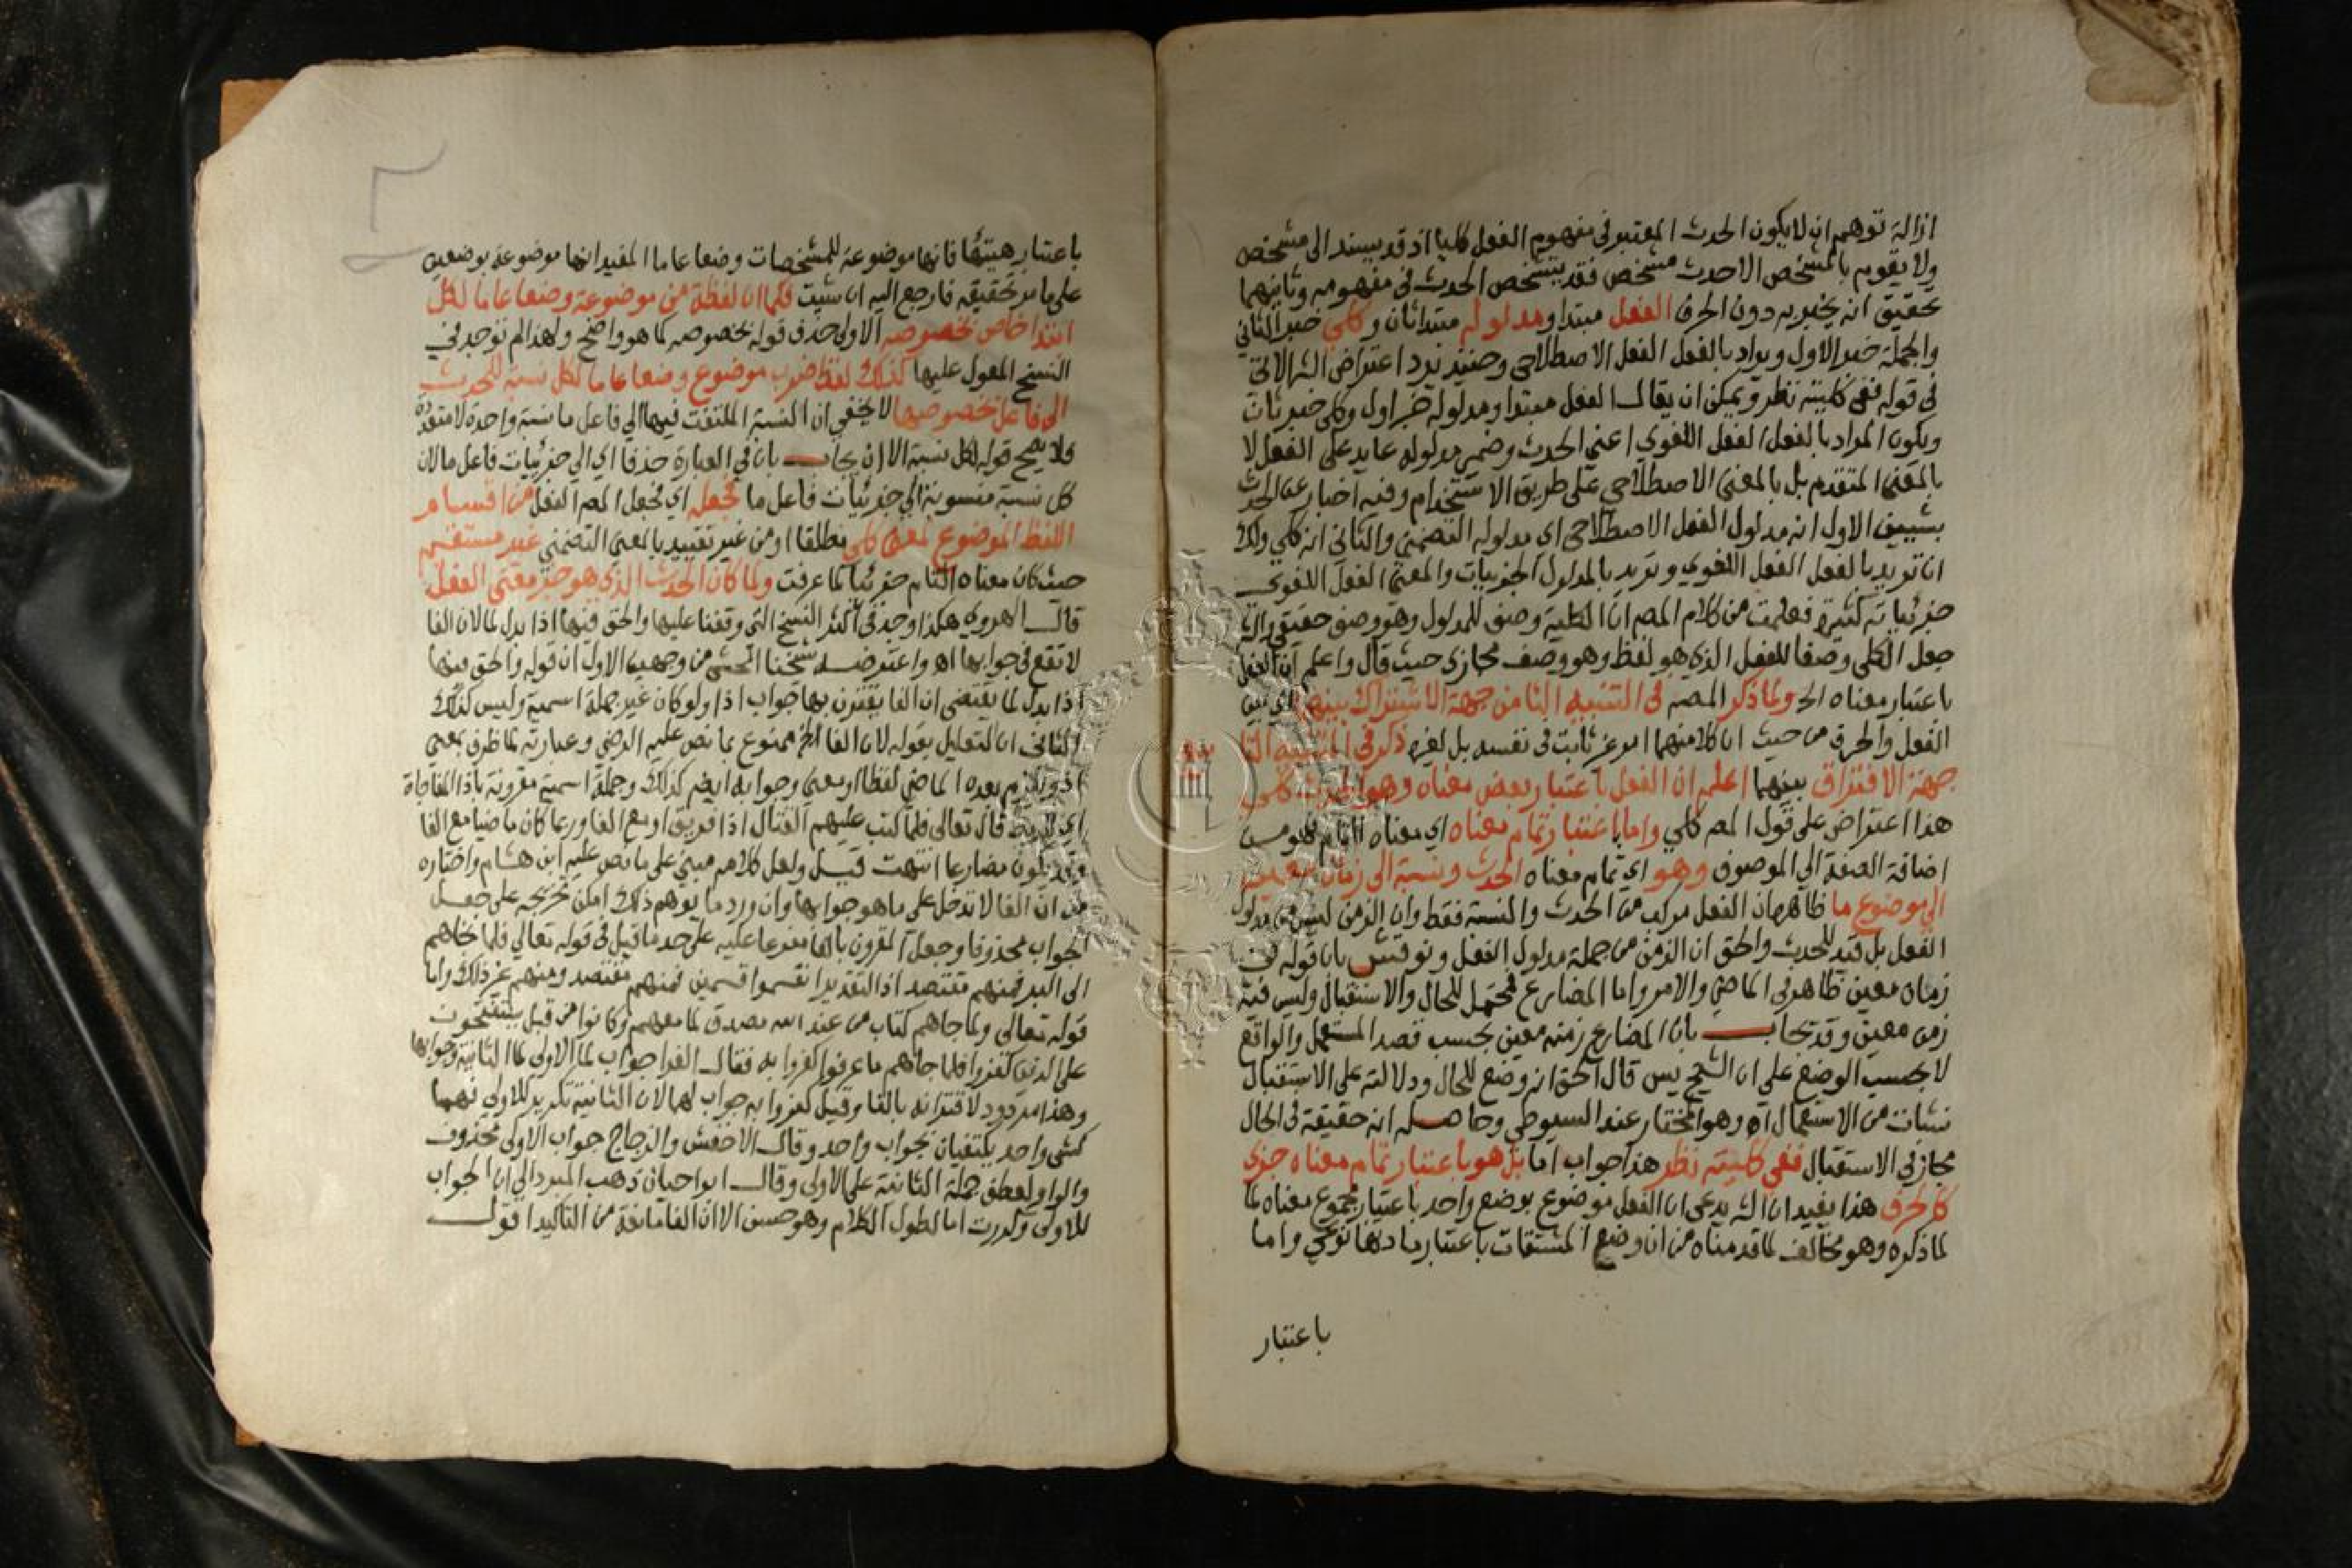 ازالة توهم ان لا يكون الحدث المعتبر في مفهوم الفعل كليا اذ قد يسند الى مشخص
ولا يقوم بالمشخص الا حدث مشخص فقد يتشخص الحدث في مفهومه وثانيهما
تحقيق انه يخبر به دون الحرف الفعل مبتدا ومدلوله مبتدا ثان وكلي خبر الثاني
والجملة خبر الاول ويراد بالفعل الفعل الاصطلاحي وحينئذ يرد اعتراض الش الاتي
في قوله ففي كليته نظر ويمكن ان يقال الفعل مبتدا ومدلوله خبر اول وكلي خبر ثان
ويكون المراد بالفعل الفعل اللغوي اعني الحدث وضمير مدلوله عايد على الفعل لا
بالمعنى المتقدم بل بالمعنى الاصطلاحي على طريق الاستخدام وفيه اخبار عن الحدث
بشيئين الاول انه مدلول الفعل الاصطلاحي اي مدلوله التضمني والثاني انه كلي ولك
ان تريد بالفعل الفعل اللغوي وتريد بالمدلول الجزييات والمعنى الفعل اللغوي
جزئياته كثيرة فعلمت من كلام المص ان الكلية وصف للمدلول وهو وصف حقيقي والش
جعل الكلي وصفا للفعل الذي هو لفظ وهو وصف مجازي حيث قال واعلم ان الفعل
باعتبار معناه الخ ولما ذكر المصم في التنبيه الثامن جهة الاشتراك بينهما اي بين
الفعل والحرف من حيث ان كلا منهما غير ثابت في نفسه بل لغيره ذكر في التنبيه التا
سع
جهة الافتراق بينهما اعلم ان الفعل باعتبار بعض معناه وهو الحدث كلي
هذا اعتراض على قول المص كلي واما باعتبار تمام معناه اي معناه التام فهو من
اضافة الصفة الي الموصوف وهو اي تمام معناه الحدث ونسبة الى زمان معين
الي موضوع ما ظاهره ان الفعل مركب من الحدث والنسبة فقط وان الزمن ليس من مدلول
الفعل بل قيد للحدث والحق ان الزمن من جملة مدلول الفعل ونوقش بان قوله في
زمان معين ظاهر في الماضي والامر واما المضارع فمحتمل للحال والاستقبال وليس فيه
زمن معين وقد يجاب بان المضارع زمنه معين بحسب قصد المستعمل والواقع
لا بحسب الوضع على ان الشيخ يس قال الحق انه وضع للحال ودلالته على الاستقبال
نشات من الاستعمال اه وهو المختار عند السيوطي وحاصله انه حقيقة في الحال
مجاز في الاستقبال ففي كليته نظر هذا جواب اما بل هو باعتبار تمام معناه جزي
كالحرف هذا يفيد ان الش يدعى ان الفعل موضوع بوضع واحد باعتبار مجموع معناه لما
لما ذكره وهو مخالف لما قدمناه من ان وضع المشتقات باعتبار مادتها نوعي واما
باعتبار
باعتبار هيئتها فانها موضوعة للمشخصات وضعا عاما المفيد انها موضوعة بوضعين
على ما مر تحقيقه فارجع اليه ان شيت فكما ان لفظة من موضوعة وضعا عاما لكل
ابتدا خاص بخصوصه الاولى حذف قوله بخصوصه كما هو واضح ولهذا لم توجد في
النسخ المعول عليها كذلك لفظ ضرب موضوع وضعا عاما لكل نسبة للحدث
الى فاعل بخصوصها لا يخفى ان النسبة الملتفت فيها الى فاعل ما نسبة واحدة لا متعددة
فلا يصح قوله لكل نسبة الا ان يجاب بان في العبارة حذفا اي الى جزئيات فاعل ما لان
كل نسبة منسوبة الى جزئيات فاعل ما فجعله اي فجعل المص الفعل من اقسام
اللفظ الموضوع لمعنى كلي مطلقا او من غير تقييد بالمعنى التضمني غير مستقيم
حيث كان معناه التام جزئيا لما عرفت ولما كان الحدث الذي هو جزء معنى الفعل
قال الهروي هكذا وجد في اكثر النسخ التي وقفنا عليها والحق فيها اذا بدل لما لان الفا
لا تقع في جوابها اه واعترضه شيخنا المحشي من وجهين الاول ان قوله والحق فيها
اذا بدل لما يقتضي ان الفا يقترن بها جواب اذا ولو كان غير جملة اسمية وليس كذلك
الثاني ان التعليل بقوله لان الفا الخ ممنوع بما نص عليه الرضي وعبارته لما ظرف بمعنى
اذ ويلزم بعده الماضي لفظا او معنى وجوابه ايض كذلك وجملة اسمية مقرونة باذا المفاجاة
قال تعالى فلما كتب عليهم القتال اذا فريق او مع الفا وربما كان ماضيا مع الفا
وقد يكون مضارعا انتهت قيل ولعل كلامه مبني على ما نص عليه ابن هشام واختاره
من ان الفا لا تدخل على ما هو جوابها وان ورد ما يوهم ذلك امكن تخريجه على جعل
الجواب محذوفا وجعل المقرون بالفا مفرعا عليه على حد ما قيل في قوله تعالى فلما نجاهم
الى البر فمنهم مقتصد اذ التقدير انقسموا قسمين فمنهم مقتصد ومنهم غير ذلك واما
قوله تعالى ولما جاهم كتاب من عند الله مصدق لما معهم وكانوا من قبل يستفتحون
على الذين كفروا فلما جاهم ما عرفوا كفروا به فقال الفرا جواب لما الاولى لما الثانية وجوابها
وهذا مردود لاقترانه بالفا وقيل كفروا به جواب لهما لان الثانية تكرير للاولى فهما
كشي واحد يكتفيان بجواب واحد وقال الاخفش والزجاج جواب الاولى محذوف
والواو لعطف جملة الثانية على الاولى وقال ابو احيان ذهب المبرد الي ان الجواب
للاولى وكررت لما لطول الكلام وهو حسن الا ان الفا مانعة من التاكيد اقول